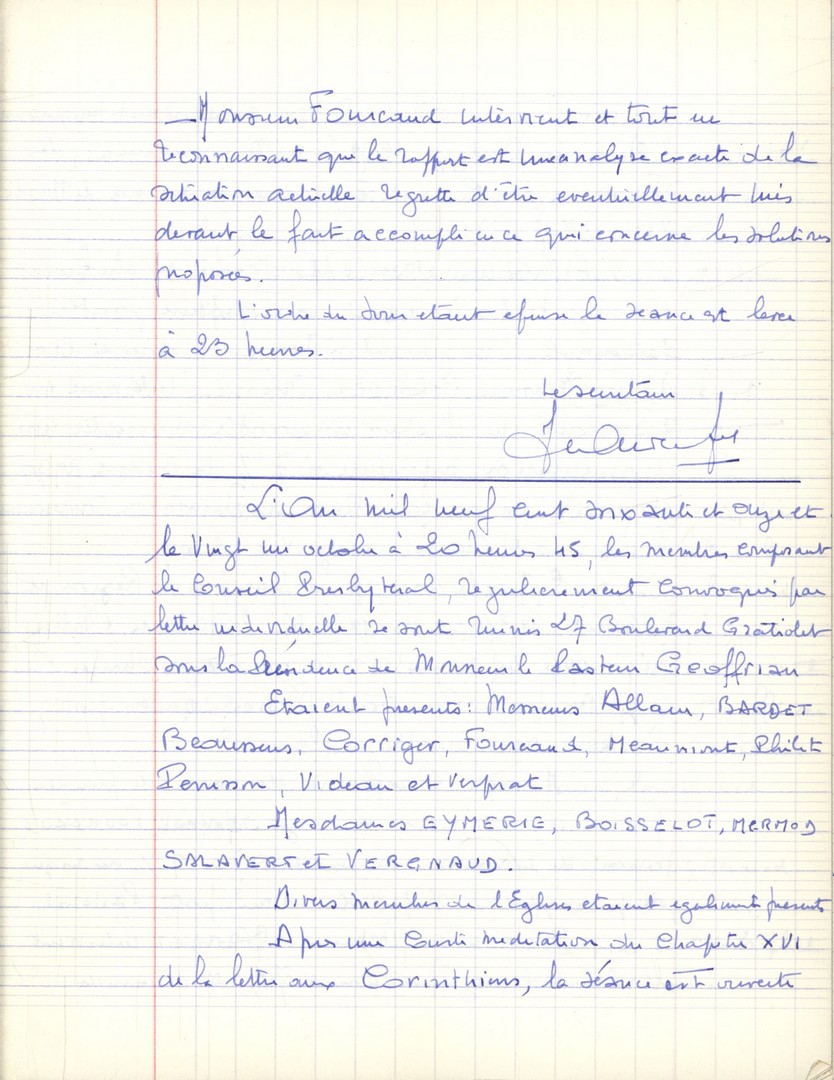 — Monsieur Fourcaud intervient et tout en
reconnaissant que le rapport est une analyse exacte de la
situation actuelle regrette d'être eventuellement mis
devant le fait accompli en ce qui concerne les solutions
proposées.
L'ordre du Jour etant epuise la seance est levee
à 23 heures.
Le secretaire
L'An mil neuf cent soixante et onze et
le Vingt un octobre à 20 heures 45, les membres composant
le Conseil Presbyteral, regulierement convoqués par
lettre individuelle se sont reunis 27 Boulevard Gratiolet
sous la Présidence de Monsieur le Pasteur Geoffrian
Etaient presents: Messieurs Allain, BARDET
Beaussens, Corriger, Fourcaud, Meaumont, Philit
Penisson, Videau et Verprat
Mesdames EYMERIE, BOISSELOT, MERMOD
SALAVERT et VERGNAUD.
Divers membres de l'Eglise etaient egalement presents
Apres une courte meditation du Chapitre XVI
de la lettre aux Corinthiens, la séance est ouverte